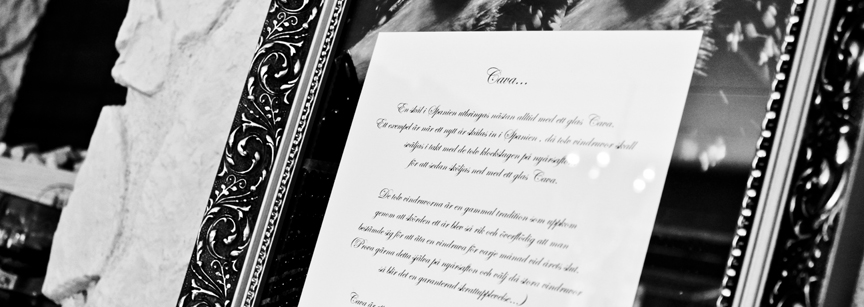 Cava...
En skål i Spanien utbringas nästan alltid med ett glas Cava.
Ett exempel är när ett nytt år skålas in i Spanien, då tolv vindruvor skall
sväljas i takt med de tolv klockslagen på nyårsaft.
för att sedan sköljas ned med ett glas Cava.
De tolv vindruvorna är en gammal tradition som uppkom
genom att skörden ett år blev så rik och överflödig att man
bestämde sig för att äta en vindruva för varje månad vid årets slut.
(Prova gärna detta själva på nyårsafton och välj då stora vindruvor
så blir det en garanterad skrattupplevelse...)
Cava är